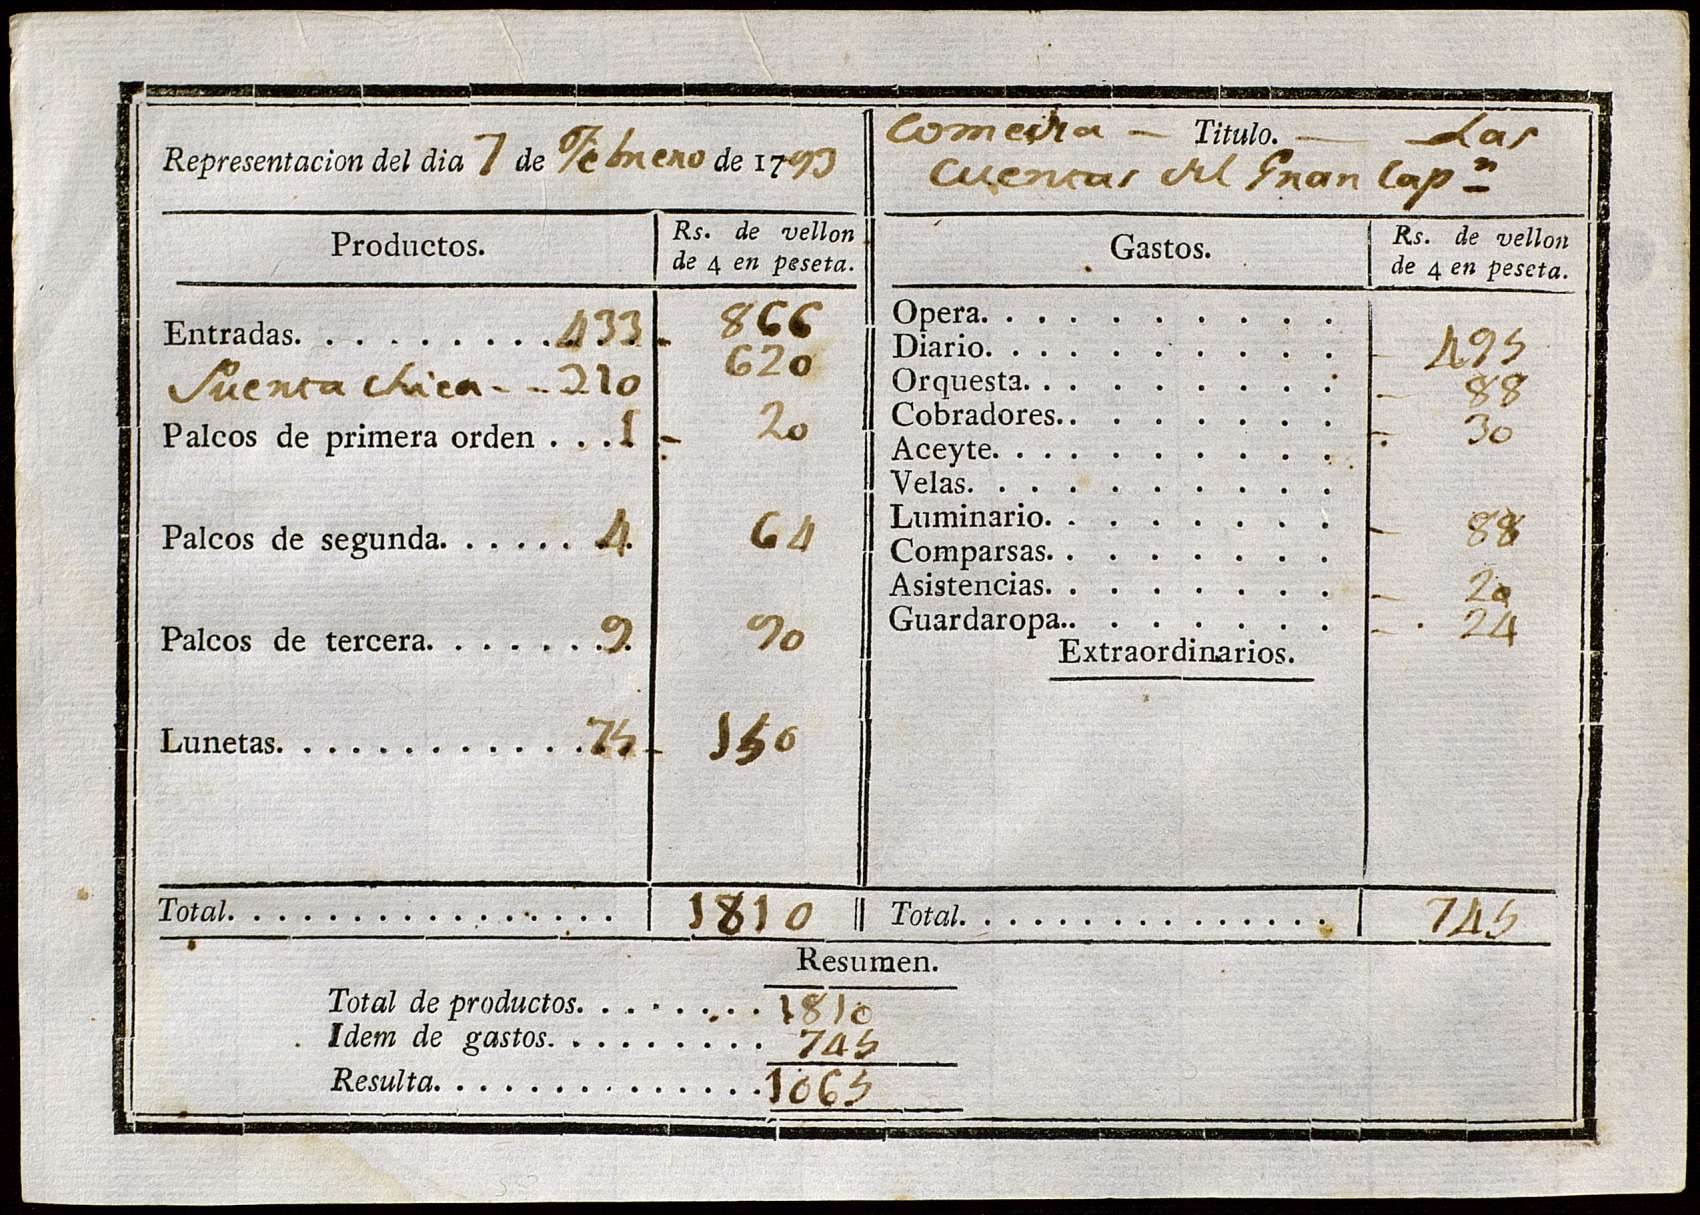 Representacion del dia 7 de Febrero de 1793
Comedia — Titulo. — Las
Cuentas del Gran Capn
Productos.
Rs. de vellon
de 4 en peseta.
Entradas. . . . . . . . . . . 433 - 866
Puerta chica - - 310 620
Palcos de primera orden . . . 1 - 20
Palcos de segunda. . . . . . . 4 64
Palcos de tercera. . . . . . . 9 90
Lunetas. . . . . . . . . . . . . 75 - 150
Total. . . . . . . . . . . . . . . . 1810
Gastos.
Rs. de vellon
de 4 en peseta.
Opera. . . . . . . . . .
Diario. . . . . . . . . . - 495
Orquesta. . . . . . . . . - 88
Cobradores.. . . . . . . - 30
Aceyte. . . . . . . . . .
Velas. . . . . . . . . .
Luminario. . . . . . . . - 88
Comparsas. . . . . . . .
Asistencias. . . . . . . . - 20
Guardaropa.. . . . . . . - 24
Extraordinarios.
Total. . . . . . . . . . . . . . . 745
Resumen.
Total de productos. . . . . . . . 1810
Idem de gastos. . . . . . . . . 745
Resulta. . . . . . . . . . . . . . 1065